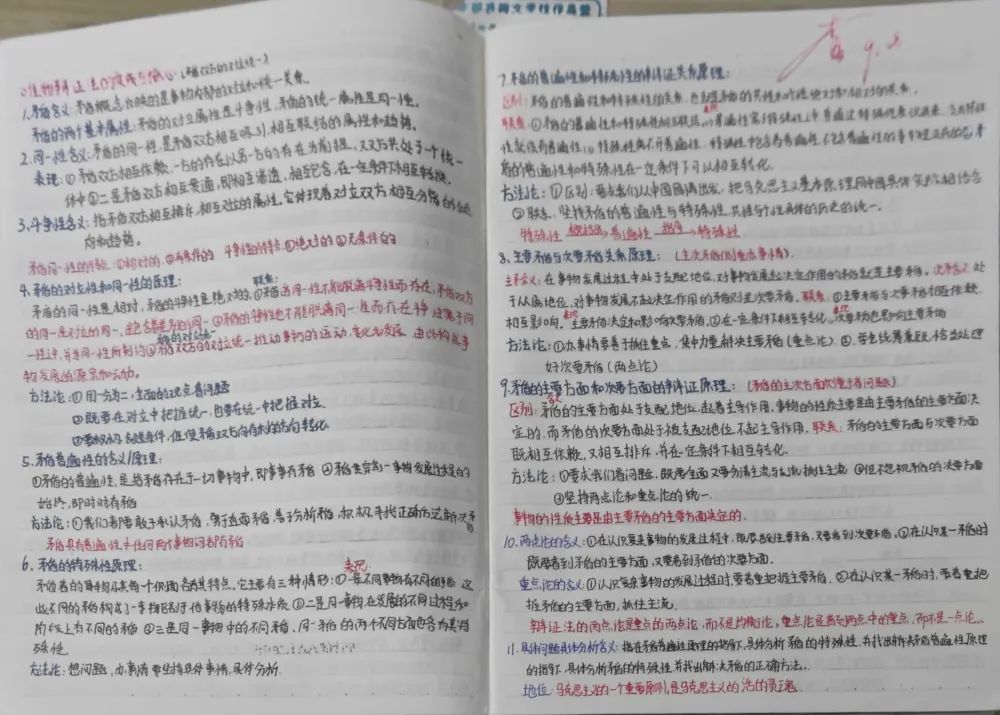 唯物辩证法的实质与核心（矛盾双方的对立统一）
1.矛盾含义：矛盾概念反映的是事物内部的对立和统一关系。
矛盾的两个基本属性：矛盾的对立属性是斗争性，矛盾的统一属性是同一性。
2.同一性含义：矛盾的同一性是矛盾双方相互吸引、相互联结的属性和趋势。
表现：①矛盾双方相互依赖，一方的存在以另一方的存在为前提，双方共处于一个统一
体中②二是矛盾双方相互贯通，即相互渗透、相互包含，在一定条件下相互转换。
3.斗争性含义：指矛盾双方相互排斥、相互对立的属性。它体现着对立双方相互分离的
倾向和趋势。
矛盾同一性的特点：①相对的，②有条件的 斗争性的特点：①绝对的②无条件的
4.矛盾的对立性和同一性的原理： 联系：
矛盾的同一性是相对，矛盾的斗争性是绝对的。①矛盾的同一性不能脱离斗争性而存在，矛盾双方
的同一是对立的同一，是包含着差别的同一②矛盾的斗争性也不能脱离同一性而存在斗争性寓于同
一性之中，并为同一性所制约③矛盾双方的对立统一推动事物的运动、变化和发展，由此构成事
物发展的源泉和动力。
方法论：①用一分为二、全面的观点看问题
②既要在对立中把握统一，也要在统一中把握对立。
5.矛盾普遍性的含义/原理：
①矛盾的普遍性，是指矛盾存在于一切事物中，即事事有矛盾②矛盾贯穿每一事物发展过程的
始终，即时时有矛盾
方法论：①我们都要敢于承认矛盾，勇于直面矛盾，善于分析矛盾，积极寻找正确方法解决矛盾
矛盾具有普遍性≠任何两个事物间都有矛盾
6.矛盾的特殊性原理： 表现：
这些不同的矛盾构成了一事物区别于他事物的特殊本质②二是同一事物在发展的不同过程和
阶段上有不同的矛盾③三是同一事物中的不同矛盾、同一矛盾的两个不同方面也各有其特
殊性。
方法论：想问题、办事情要坚持具体事情具体分析
7.矛盾的普遍性和特殊性的辩证关系原理： 9.8
区别：矛盾的普遍性和特殊性的关系，也就是矛盾的共性和个性、绝对和相对的关系。
联系：①矛盾的普遍性和特殊性相互联结。普遍性寓于特殊性之中，并通过特殊性表现出来，没有特殊
性就没有普遍性。特殊性离不开普遍性，特殊性中包含着普遍性，不包含普遍性的事物是没有的②矛
盾的普遍性和特殊性在一定条件下可以相互转化。
方法论：①区别：要求我们从中国国情出发，把马克思主义基本原理同中国具体实际相结合
②联系：坚持矛盾的普遍性与特殊性、共性与个性具体的历史的统一。
特殊性 概括出→普遍性 指导→特殊性
8.主要矛盾与次要矛盾关系原理：（主次矛盾侧重办事情）
主矛含义：在事物发展过程中处于支配地位，对事物发展起决定作用的矛盾就是主要矛盾。次矛含义：处
于从属地位，对事物发展不起决定作用的矛盾则是次要矛盾。联系：①主要矛盾与次要矛盾相互依赖、
相互影响。主要矛盾决定和影响次要矛盾，②在一定条件下相互转化。次要矛盾也影响主要矛盾
方法论：①办事情要善于抓住重点，集中力量解决主要矛盾（重点论）②学会统筹兼顾，恰当处理
好次要矛盾（两点论）
9.矛盾的主要方面和次要方面的辩证原理：（矛盾的主次方面侧重看问题）
区别：含义 矛盾的主要方面处于支配地位，起着主导作用，事物的性质主要是由主要矛盾的主要方面决
定的，而矛盾的次要方面处于被支配地位，不起主导作用。联系：矛盾的主要方面与次要方面
既相互依赖，又相互排斥，并在一定条件下相互转化。
方法论：①要求我们看问题，既要全面又要分清主流与支流，抓住主流②但不忽视矛盾的次要方面
③坚持两点论和重点论的统一。
事物的性质主要是由主要矛盾的主要方面决定的。
10.两点论的含义：①在认识复杂事物的发展过程中，既要看到主要矛盾，又要看到次要矛盾，②在认识某一矛盾时
既要看到矛盾的主要方面，又要看到矛盾的次要方面。
重点论的含义：①认识复杂事物的发展过程时，要着重把握主要矛盾，②在认识某一矛盾时，要着重把
握矛盾的主要方面，抓住主流。
辩证法的两点论是重点的两点论，而不是均衡论，重点论是看到两点中的重点，而不是一点论。
11.具体问题具体分析含义：指在矛盾普遍性原理的指导下，具体分析矛盾的特殊性，并找出解决矛盾普遍性原理
的指导下，具体分析矛盾的特殊性并找出解决矛盾的正确方法。
地位：马克思主义的一个重要原则，是马克思主义的活的灵魂